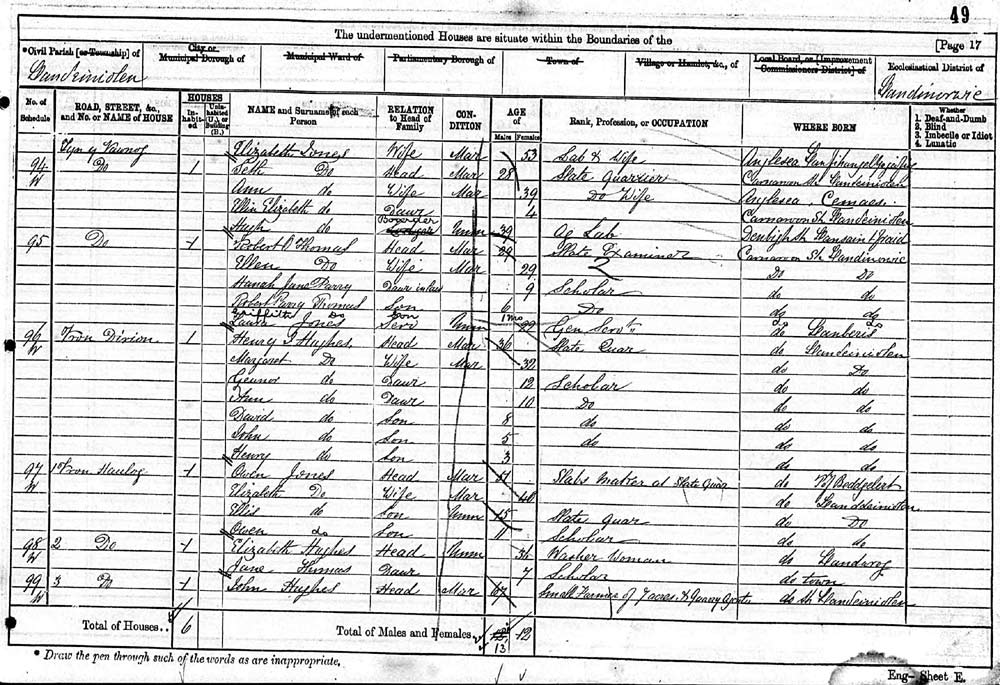 49
The undermentioned Houses are situate within the Boundaries of the
[Page 17
*Civil Parish [or Township] of
Llandeiniolen
City or Municipal Borough of
Municipal Ward of
Parliamentary Borough of
Town of
Village or Hamlet, &c., of
Local Board, or [Improvement Commissioners District] of
Ecclesiastical District of
Llandinorwic
No. of Schedule
ROAD, STREET, &c., and No. or NAME of HOUSE
HOUSES
Inhabited
Uninhabited (U.), or Building (B.)
NAME and Surname of each Person
RELATION to Head of Family
CONDITION
AGE of
Males
Females
Rank, Profession, or OCCUPATION
WHERE BORN
Whether
1. Deaf-and-Dumb
2. Blind
3. Imbecile or Idiot
4. Lunatic
Elizabeth Jones Wife Mar 53 Lab & Wife Anglesea
94 W Do 1 Seth Do Head Mar 28 Slate Quarrier Carnarvon Sh Llandeiniolen
Ann do Wife Mar 39 Do Wife Anglesea, Cemaes.
Ellin Elizabeth do Dawr 4 Carnarvon Sh Llandeiniolen
Hugh do Boarder Unm 39 Ag Lab Denbigh Sh
95 Do 1 Robert O Thomas Head Mar 29 Slate Examiner Carnarvon Sh Llandinorwic
Ellen Do Wife Mar 29 Do Do
Hanah Jane Parry Dawr in law 9 Scholar do do
Robert Parry Thomas Son 6 Do do do
Griffith Do Son 1 Mo do do
Laura Jones Serv Unm 22 Gen Servt do Llanberis
96 W Fron Dirion 1 Henry J Hughes Head Mar 36 Slate Quar do Llandeiniolen
Margaret Do Wife Mar 32 do Do
Geunor do Dawr 12 Scholar do do
Ann do Dawr 10 Do do do
David do Son 8 do do do
John do Son 5 do do do
Henry do Son 3 do do
97 W 1 Fron Haulog 1 Owen Jones Head Mar Slabs maker at Slate Quar do Beddgelert
Elizabeth Do Wife Mar 40 do Llanddeiniolen
Ellis do Son Unm 15 Slate Quar do Do
Owen do Son 11 Scholar do do
98 W 2 Do 1 Elizabeth Hughes Head Unm 36 Washer Woman do Llandwrog
Jane Thomas Dawr 7 Scholar do town
99 W 3 Do 1 John Hughes Head Mar 67 Small Farmer of 7 acres & do Sh Llandeiniolen
Total of Houses.. 6
Total of Males and Females.. 13 12
* Draw the pen through such of the words as are inappropriate.
Eng- Sheet E.